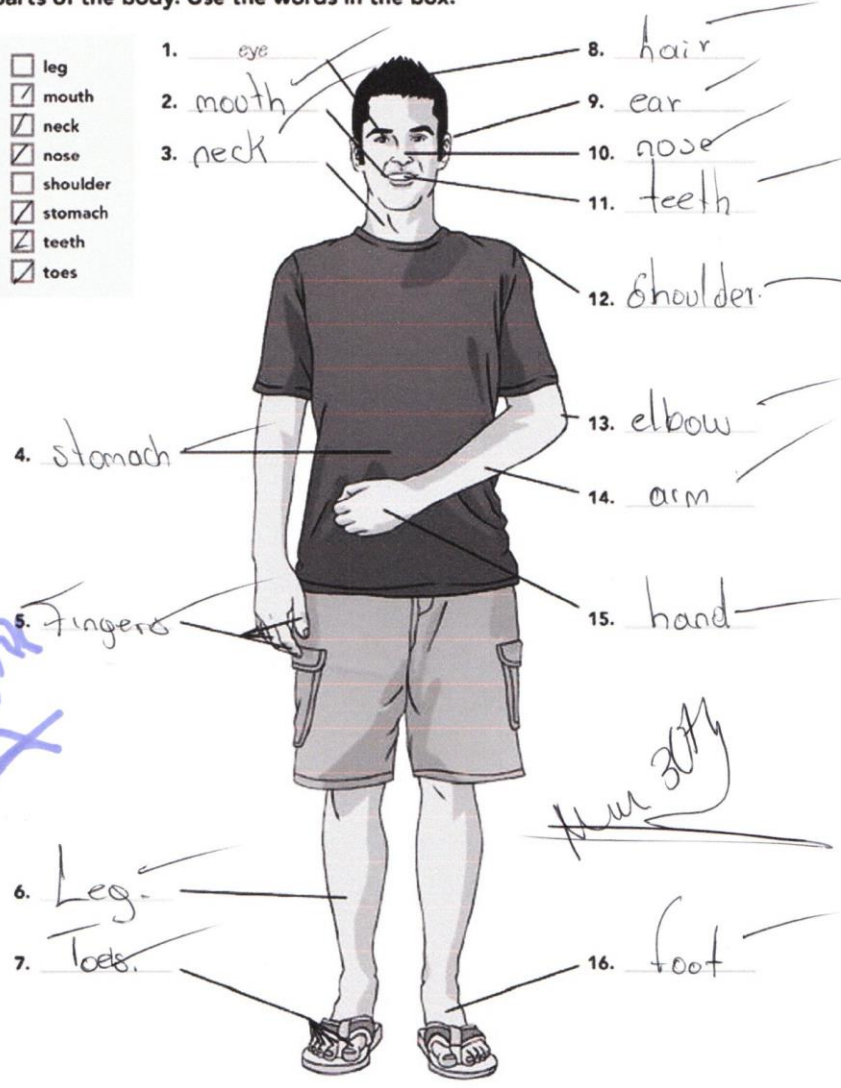 parts of the body. Use the words in the box.
leg
mouth
neck
nose
shoulder
stomach
teeth
toes
1. eye
2. mouth
3. neck
4. stomach
5. Fingers
6. Leg.
7. Toes.
8. hair
9. ear
10. nose
11. teeth
12. Shoulder.
13. elbow
14. arm
15. hand
16. foot